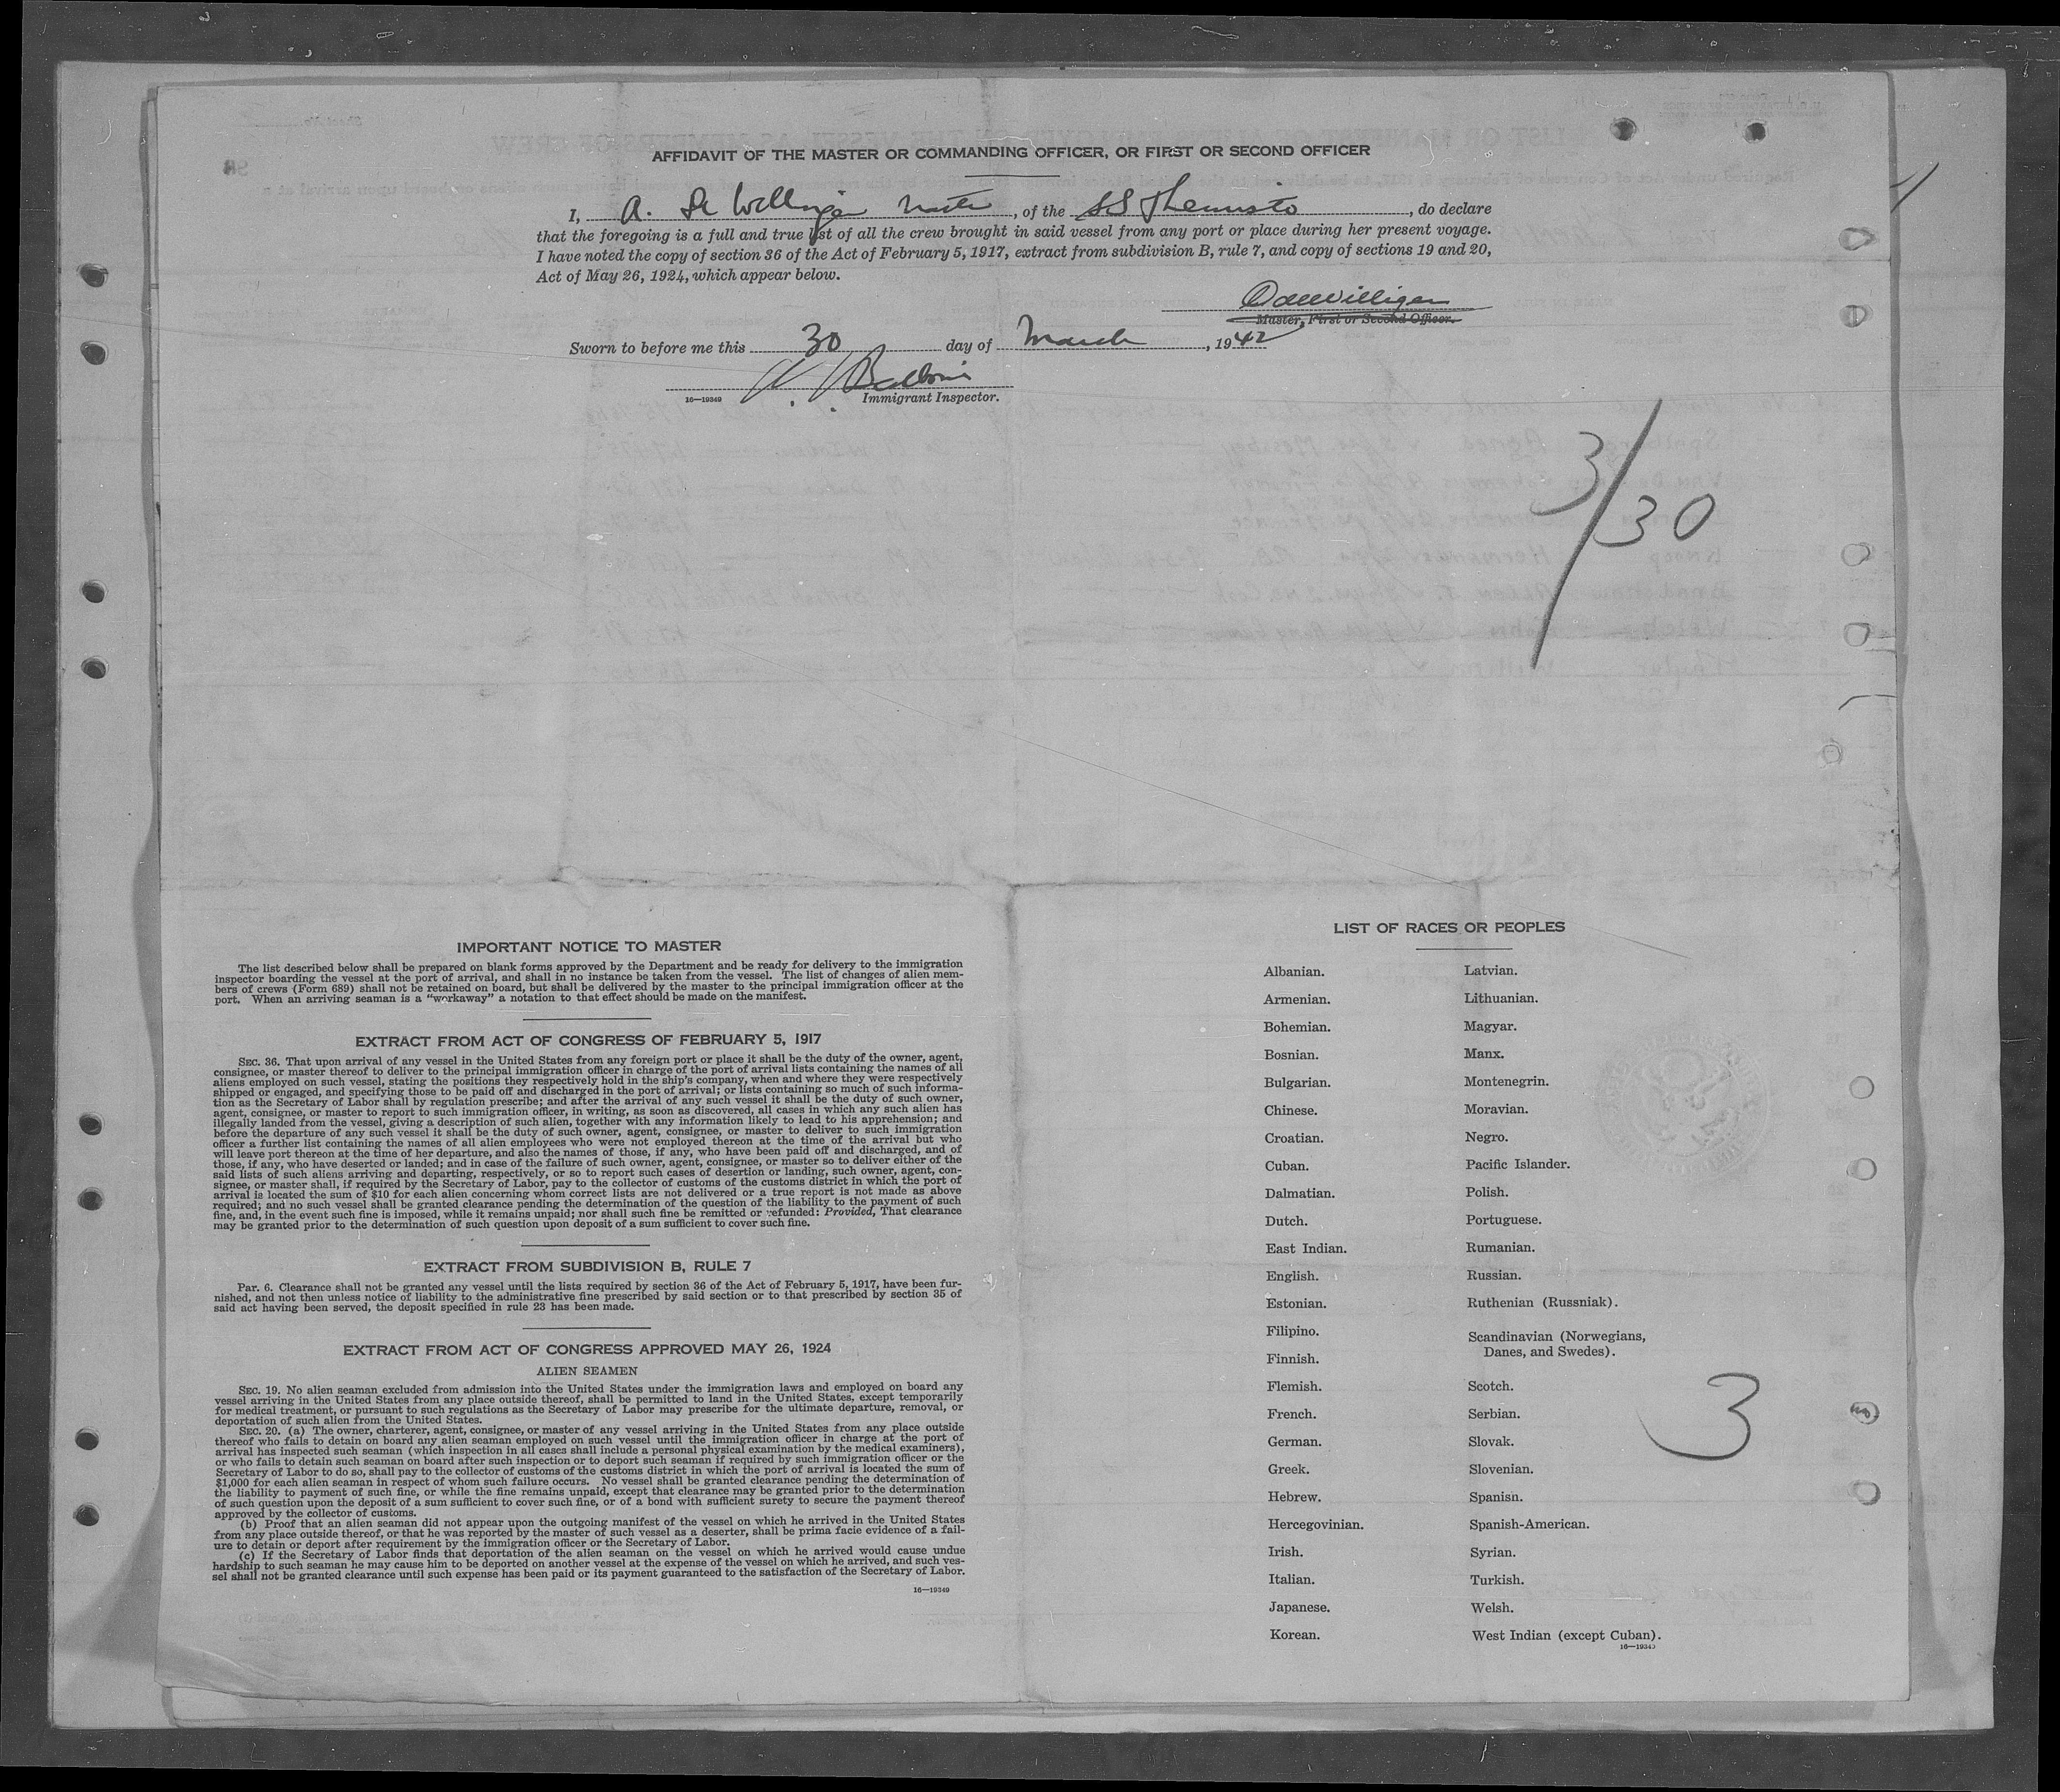 AFFIDAVIT OF THE MASTER OR COMMANDING OFFICER, OR FIRST OR SECOND OFFICER
I, A. De Willigen Master, of the SS Themisto, do declare
that the foregoing is a full and true list of all the crew brought in said vessel from any port or place during her present voyage.
I have noted the copy of section 36 of the Act of February 5, 1917, extract from subdivision B, rule 7, and copy of sections 19 and 20,
Act of May 26, 1924, which appear below.
Master, First or Second Officer.
Sworn to before me this 30 day of March, 1942
16—19349 Immigrant Inspector.
3/30
IMPORTANT NOTICE TO MASTER
The list described below shall be prepared on blank forms approved by the Department and be ready for delivery to the immigration
inspector boarding the vessel at the port of arrival, and shall in no instance be taken from the vessel. The list of changes of alien mem-
bers of crews (Form 689) shall not be retained on board, but shall be delivered by the master to the principal immigration officer at the
port. When an arriving seaman is a "workaway" a notation to that effect should be made on the manifest.
EXTRACT FROM ACT OF CONGRESS OF FEBRUARY 5, 1917
SEC. 36. That upon arrival of any vessel in the United States from any foreign port or place it shall be the duty of the owner, agent,
consignee, or master thereof to deliver to the principal immigration officer in charge of the port of arrival lists containing the names of all
aliens employed on such vessel, stating the positions they respectively hold in the ship's company, when and where they were respectively
shipped or engaged, and specifying those to be paid off and discharged in the port of arrival; or lists containing so much of such informa-
tion as the Secretary of Labor shall by regulation prescribe; and after the arrival of any such vessel it shall be the duty of such owner,
agent, consignee, or master to report to such immigration officer, in writing, as soon as discovered, all cases in which any such alien has
illegally landed from the vessel, giving a description of such alien, together with any information likely to lead to his apprehension; and
before the departure of any such vessel it shall be the duty of such owner, agent, consignee, or master to deliver to such immigration
officer a further list containing the names of all alien employees who were not employed thereon at the time of the arrival but who
will leave port thereon at the time of her departure, and also the names of those, if any, who have been paid off and discharged, and of
those, if any, who have deserted or landed; and in case of the failure of such owner, agent, consignee, or master so to deliver either of the
said lists of such aliens arriving and departing, respectively, or so to report such cases of desertion or landing, such owner, agent, con-
signee, or master shall, if required by the Secretary of Labor, pay to the collector of customs of the customs district in which the port of
arrival is located the sum of $10 for each alien concerning whom correct lists are not delivered or a true report is not made as above
required; and no such vessel shall be granted clearance pending the determination of the question of the liability to the payment of such
fine, and, in the event such fine is imposed, while it remains unpaid; nor shall such fine be remitted or refunded: Provided, That clearance
may be granted prior to the determination of such question upon deposit of a sum sufficient to cover such fine.
EXTRACT FROM SUBDIVISION B, RULE 7
Par. 6. Clearance shall not be granted any vessel until the lists required by section 36 of the Act of February 5, 1917, have been fur-
nished, and not then unless notice of liability to the administrative fine prescribed by said section or to that prescribed by section 35 of
said act having been served, the deposit specified in rule 23 has been made.
EXTRACT FROM ACT OF CONGRESS APPROVED MAY 26, 1924
ALIEN SEAMEN
SEC. 19. No alien seaman excluded from admission into the United States under the immigration laws and employed on board any
vessel arriving in the United States from any place outside thereof, shall be permitted to land in the United States, except temporarily
for medical treatment, or pursuant to such regulations as the Secretary of Labor may prescribe for the ultimate departure, removal, or
deportation of such alien from the United States.
SEC. 20. (a) The owner, charterer, agent, consignee, or master of any vessel arriving in the United States from any place outside
thereof who fails to detain on board any alien seaman employed on such vessel until the immigration officer in charge at the port of
arrival has inspected such seaman (which inspection in all cases shall include a personal physical examination by the medical examiners),
or who fails to detain such seaman on board after such inspection or to deport such seaman if required by such immigration officer or the
Secretary of Labor to do so, shall pay to the collector of customs of the customs district in which the port of arrival is located the sum of
$1,000 for each alien seaman in respect of whom such failure occurs. No vessel shall be granted clearance pending the determination of
the liability to payment of such fine, or while the fine remains unpaid, except that clearance may be granted prior to the determination
of such question upon the deposit of a sum sufficient to cover such fine, or of a bond with sufficient surety to secure the payment thereof
approved by the collector of customs.
(b) Proof that an alien seaman did not appear upon the outgoing manifest of the vessel on which he arrived in the United States
from any place outside thereof, or that he was reported by the master of such vessel as a deserter, shall be prima facie evidence of a fail-
ure to detain or deport after requirement by the immigration officer or the Secretary of Labor.
(c) If the Secretary of Labor finds that deportation of the alien seaman on the vessel on which he arrived would cause undue
hardship to such seaman he may cause him to be deported on another vessel at the expense of the vessel on which he arrived, and such ves-
sel shall not be granted clearance until such expense has been paid or its payment guaranteed to the satisfaction of the Secretary of Labor.
16—19349
LIST OF RACES OR PEOPLES
Albanian.
Armenian.
Bohemian.
Bosnian.
Bulgarian.
Chinese.
Croatian.
Cuban.
Dalmatian.
Dutch.
East Indian.
English.
Estonian.
Filipino.
Finnish.
Flemish.
French.
German.
Greek.
Hebrew.
Hercegovinian.
Irish.
Italian.
Japanese.
Korean.
Latvian.
Lithuanian.
Magyar.
Manx.
Montenegrin.
Moravian.
Negro.
Pacific Islander.
Polish.
Portuguese.
Rumanian.
Russian.
Ruthenian (Russniak).
Scandinavian (Norwegians,
Danes, and Swedes).
Scotch.
Serbian.
Slovak.
Slovenian.
Spanish.
Spanish-American.
Syrian.
Turkish.
Welsh.
West Indian (except Cuban).
16—19349
3